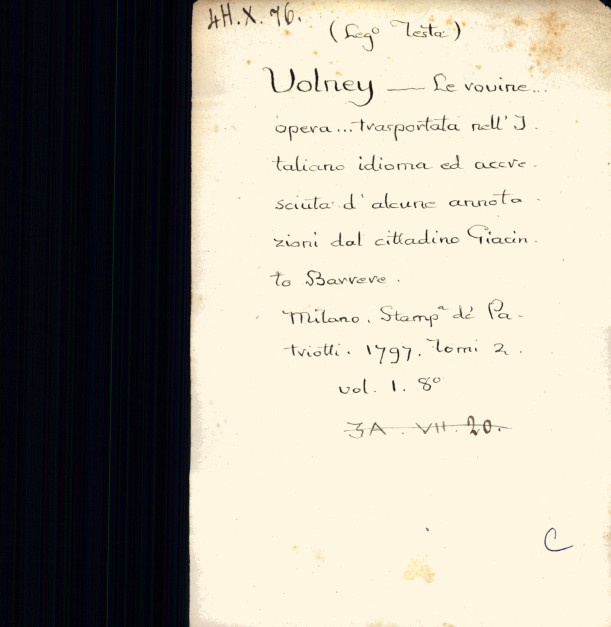 4H.X.76.
(Leg.º Testa)
Volney — Le rovine...
opera... trasportata nell' I-
taliano idioma ed accre-
sciuta d'alcune annota-
zioni dal cittadino Giacin-
to Barrere.
Milano. Stamp.ª de' Pa-
triotti. 1797. Tomi 2.
vol. 1. 8º
3A. VII. 20.
C